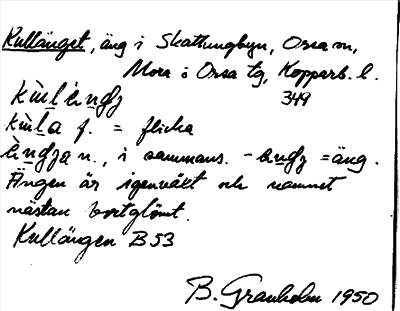 Kullänget, äng i Skattungbyn, Orsa sn,
Mora o Orsa tg, Kopparb. l.
349
kùlèngʒ
kùla f. = flicka
èngʒa n., i sammans. -engʒ = äng.
Ängen är igenväxt och namnet
nästan bortglömt.
Kullängen B53
B. Granholm 1950